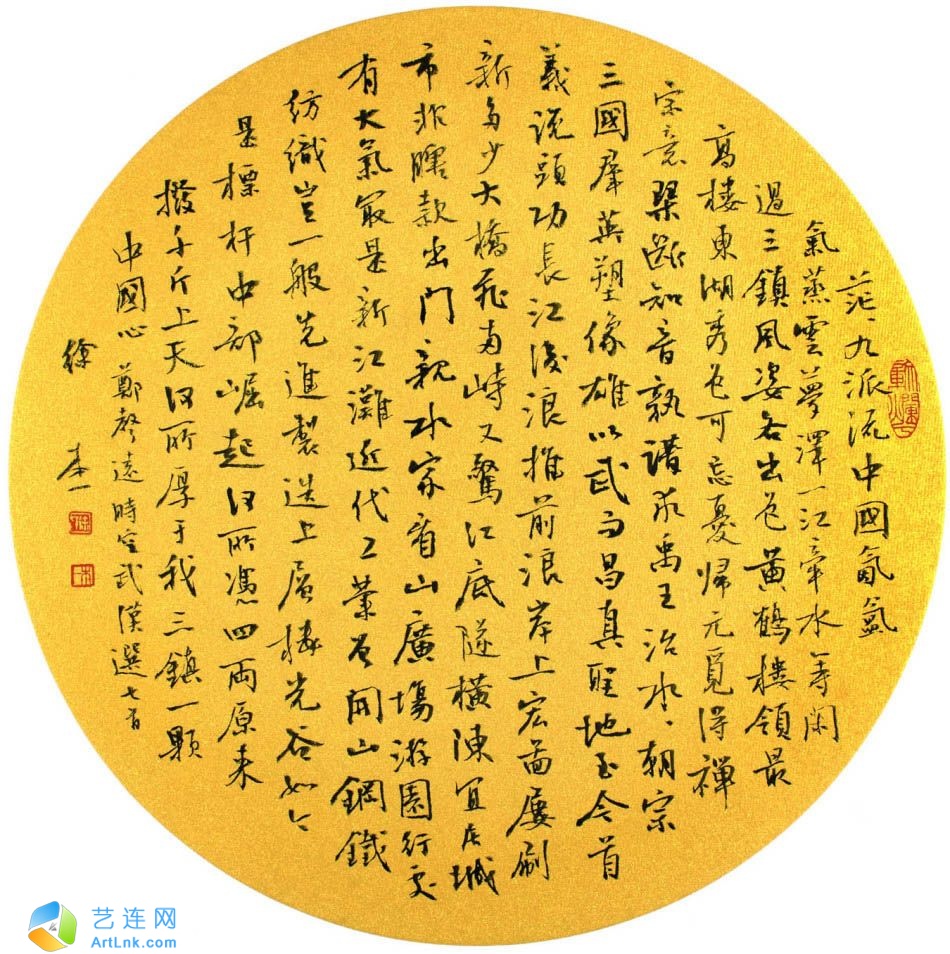 茫、九派流中國氤氳
氣蒸雲夢澤一江牽水等閑
過三鎮風姿各出色黄鶴樓領最
高樓東湖秀色可忘憂歸元覓得禪
宗意琹斷知音孰譜求禹王治水、朝宗
三國羣英塑像雄以武而昌真聖地至今首
義説頭功長江後浪推前浪岸上宏圖屢刷
新多少大橋飛兩峙又驚江底隧横陳宜居城
市非款出門親水家看山廣塲游園行处
有大氣最是新江灘近代工業首開山鋼鐵
紡織豈一般先進製造上層樓光谷如今
是標杆中部崛起何所憑四兩原来
撥千斤上天何所厚于我三鎮一顆
中國心 鄭聲遠時空武漢選七首
徐本一
艺连网
ArtLnk.com